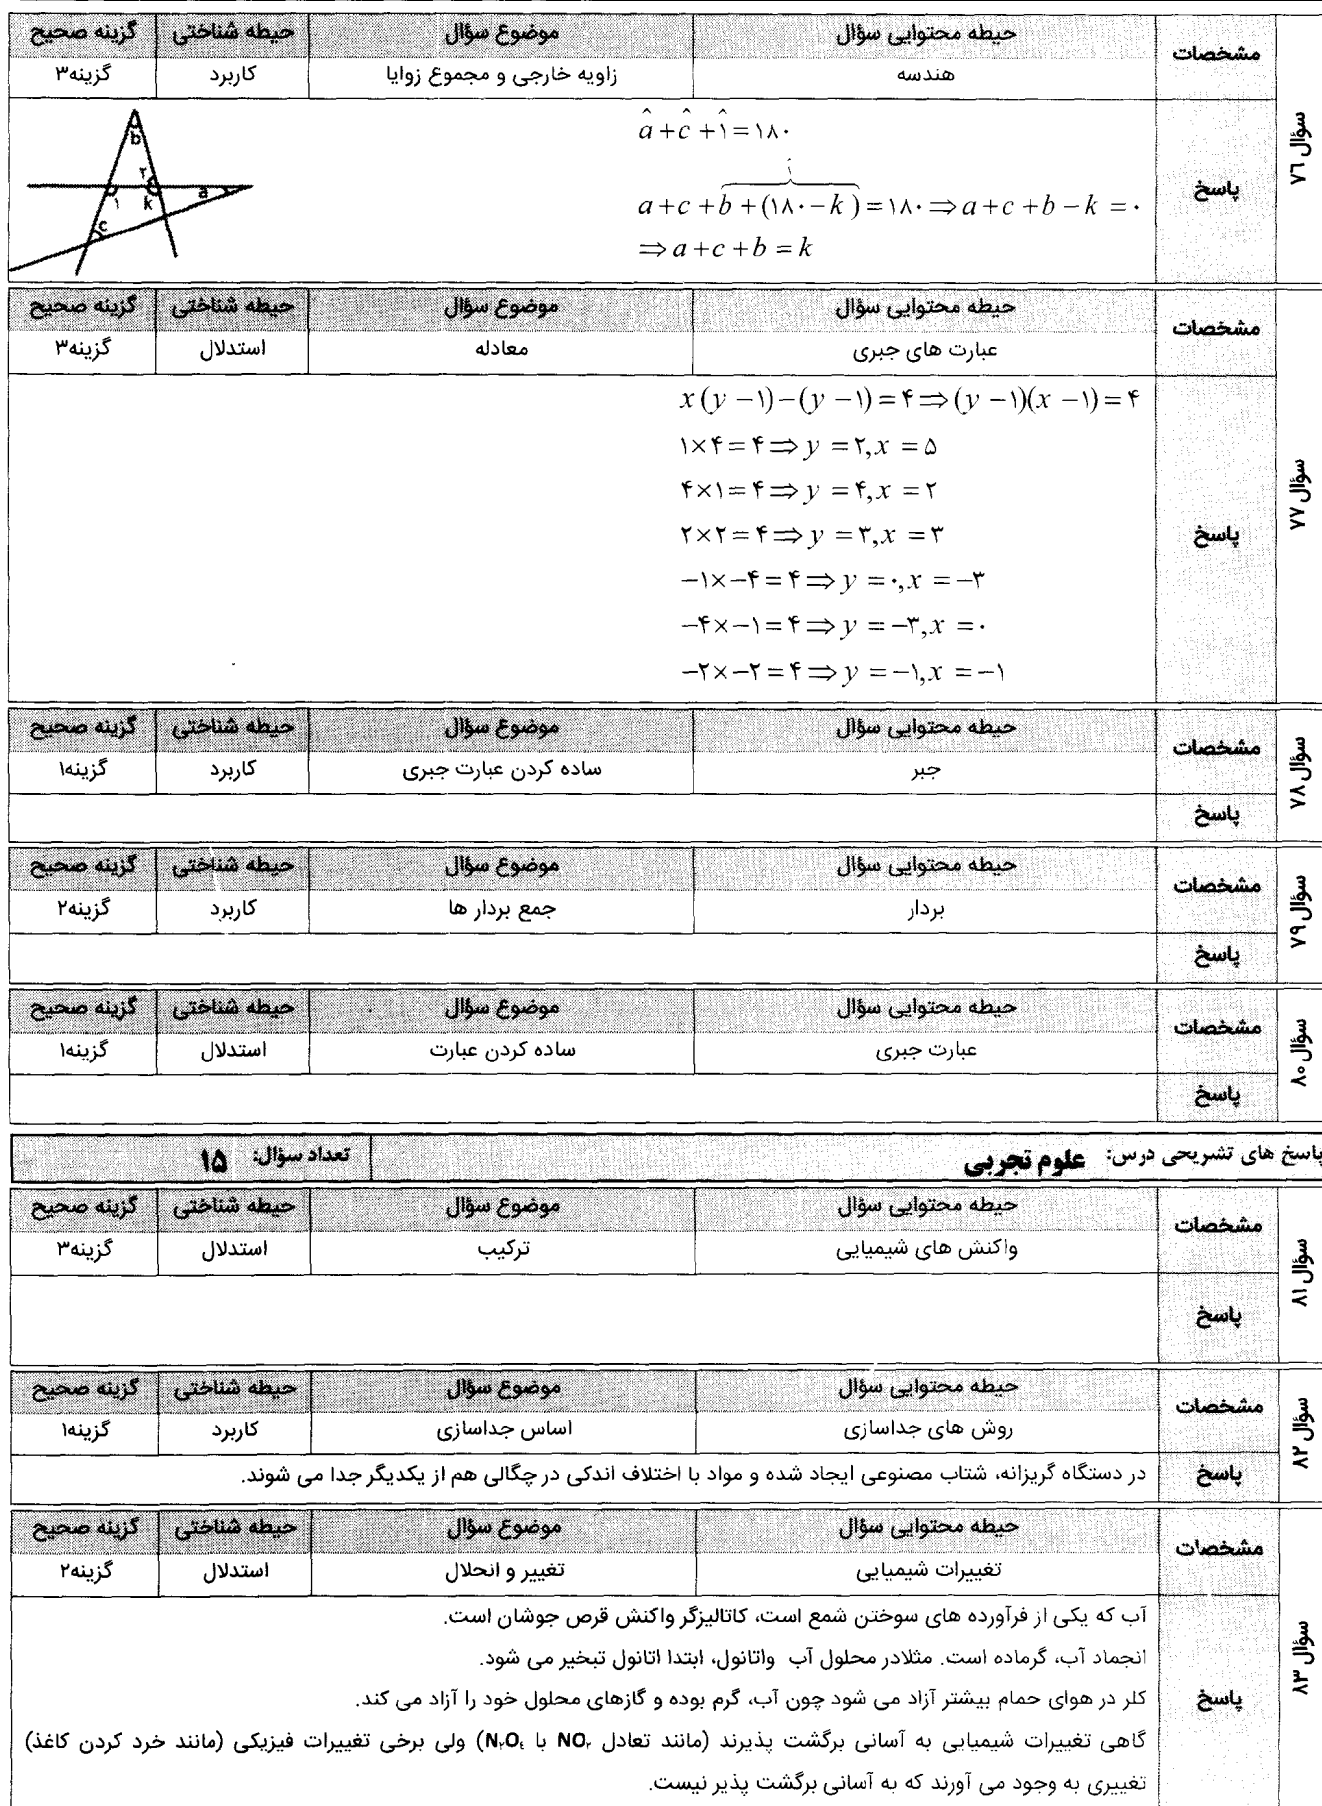 سؤال ۷۶
مشخصات
حیطه محتوایی سؤال
موضوع سؤال
حیطه شناختی
گزینه صحیح
هندسه
زاویه خارجی و مجموع زوایا
کاربرد
گزینه۳
پاسخ
â + ĉ + ۱̂ = ۱۸۰
۱̂
a + c + b + (۱۸۰ − k) = ۱۸۰ ⇒ a + c + b − k = ۰
⇒ a + c + b = k
b
۲
a
۱
k
c
سؤال ۷۷
مشخصات
حیطه محتوایی سؤال
موضوع سؤال
حیطه شناختی
گزینه صحیح
عبارت های جبری
معادله
استدلال
گزینه۳
پاسخ
x(y − ۱) − (y − ۱) = ۴ ⇒ (y − ۱)(x − ۱) = ۴
۱×۴ = ۴ ⇒ y = ۲, x = ۵
۴×۱ = ۴ ⇒ y = ۴, x = ۲
۲×۲ = ۴ ⇒ y = ۳, x = ۳
−۱×−۴ = ۴ ⇒ y = ۰, x = −۳
−۴×−۱ = ۴ ⇒ y = −۳, x = ۰
−۲×−۲ = ۴ ⇒ y = −۱, x = −۱
سؤال ۷۸
مشخصات
حیطه محتوایی سؤال
موضوع سؤال
حیطه شناختی
گزینه صحیح
جبر
ساده کردن عبارت جبری
کاربرد
گزینه۱
پاسخ
سؤال ۷۹
مشخصات
حیطه محتوایی سؤال
موضوع سؤال
حیطه شناختی
گزینه صحیح
بردار
جمع بردار ها
کاربرد
گزینه۲
پاسخ
سؤال ۸۰
مشخصات
حیطه محتوایی سؤال
موضوع سؤال
حیطه شناختی
گزینه صحیح
عبارت جبری
ساده کردن عبارت
استدلال
گزینه۱
پاسخ
پاسخ های تشریحی درس: علوم تجربی
تعداد سؤال: ۱۵
سؤال ۸۱
مشخصات
حیطه محتوایی سؤال
موضوع سؤال
حیطه شناختی
گزینه صحیح
واکنش های شیمیایی
ترکیب
استدلال
گزینه۳
پاسخ
سؤال ۸۲
مشخصات
حیطه محتوایی سؤال
موضوع سؤال
حیطه شناختی
گزینه صحیح
روش های جداسازی
اساس جداسازی
کاربرد
گزینه۱
پاسخ
در دستگاه گریزانه، شتاب مصنوعی ایجاد شده و مواد با اختلاف اندکی در چگالی هم از یکدیگر جدا می شوند.
سؤال ۸۳
مشخصات
حیطه محتوایی سؤال
موضوع سؤال
حیطه شناختی
گزینه صحیح
تغییرات شیمیایی
تغییر و انحلال
استدلال
گزینه۲
پاسخ
آب که یکی از فرآورده های سوختن شمع است، کاتالیزگر واکنش قرص جوشان است.
انجماد آب، گرماده است. مثلادر محلول آب واتانول، ابتدا اتانول تبخیر می شود.
کلر در هوای حمام بیشتر آزاد می شود چون آب، گرم بوده و گازهای محلول خود را آزاد می کند.
گاهی تغییرات شیمیایی به آسانی برگشت پذیرند (مانند تعادل NO₂ با N₂O₄) ولی برخی تغییرات فیزیکی (مانند خرد کردن کاغذ)
تغییری به وجود می آورند که به آسانی برگشت پذیر نیست.